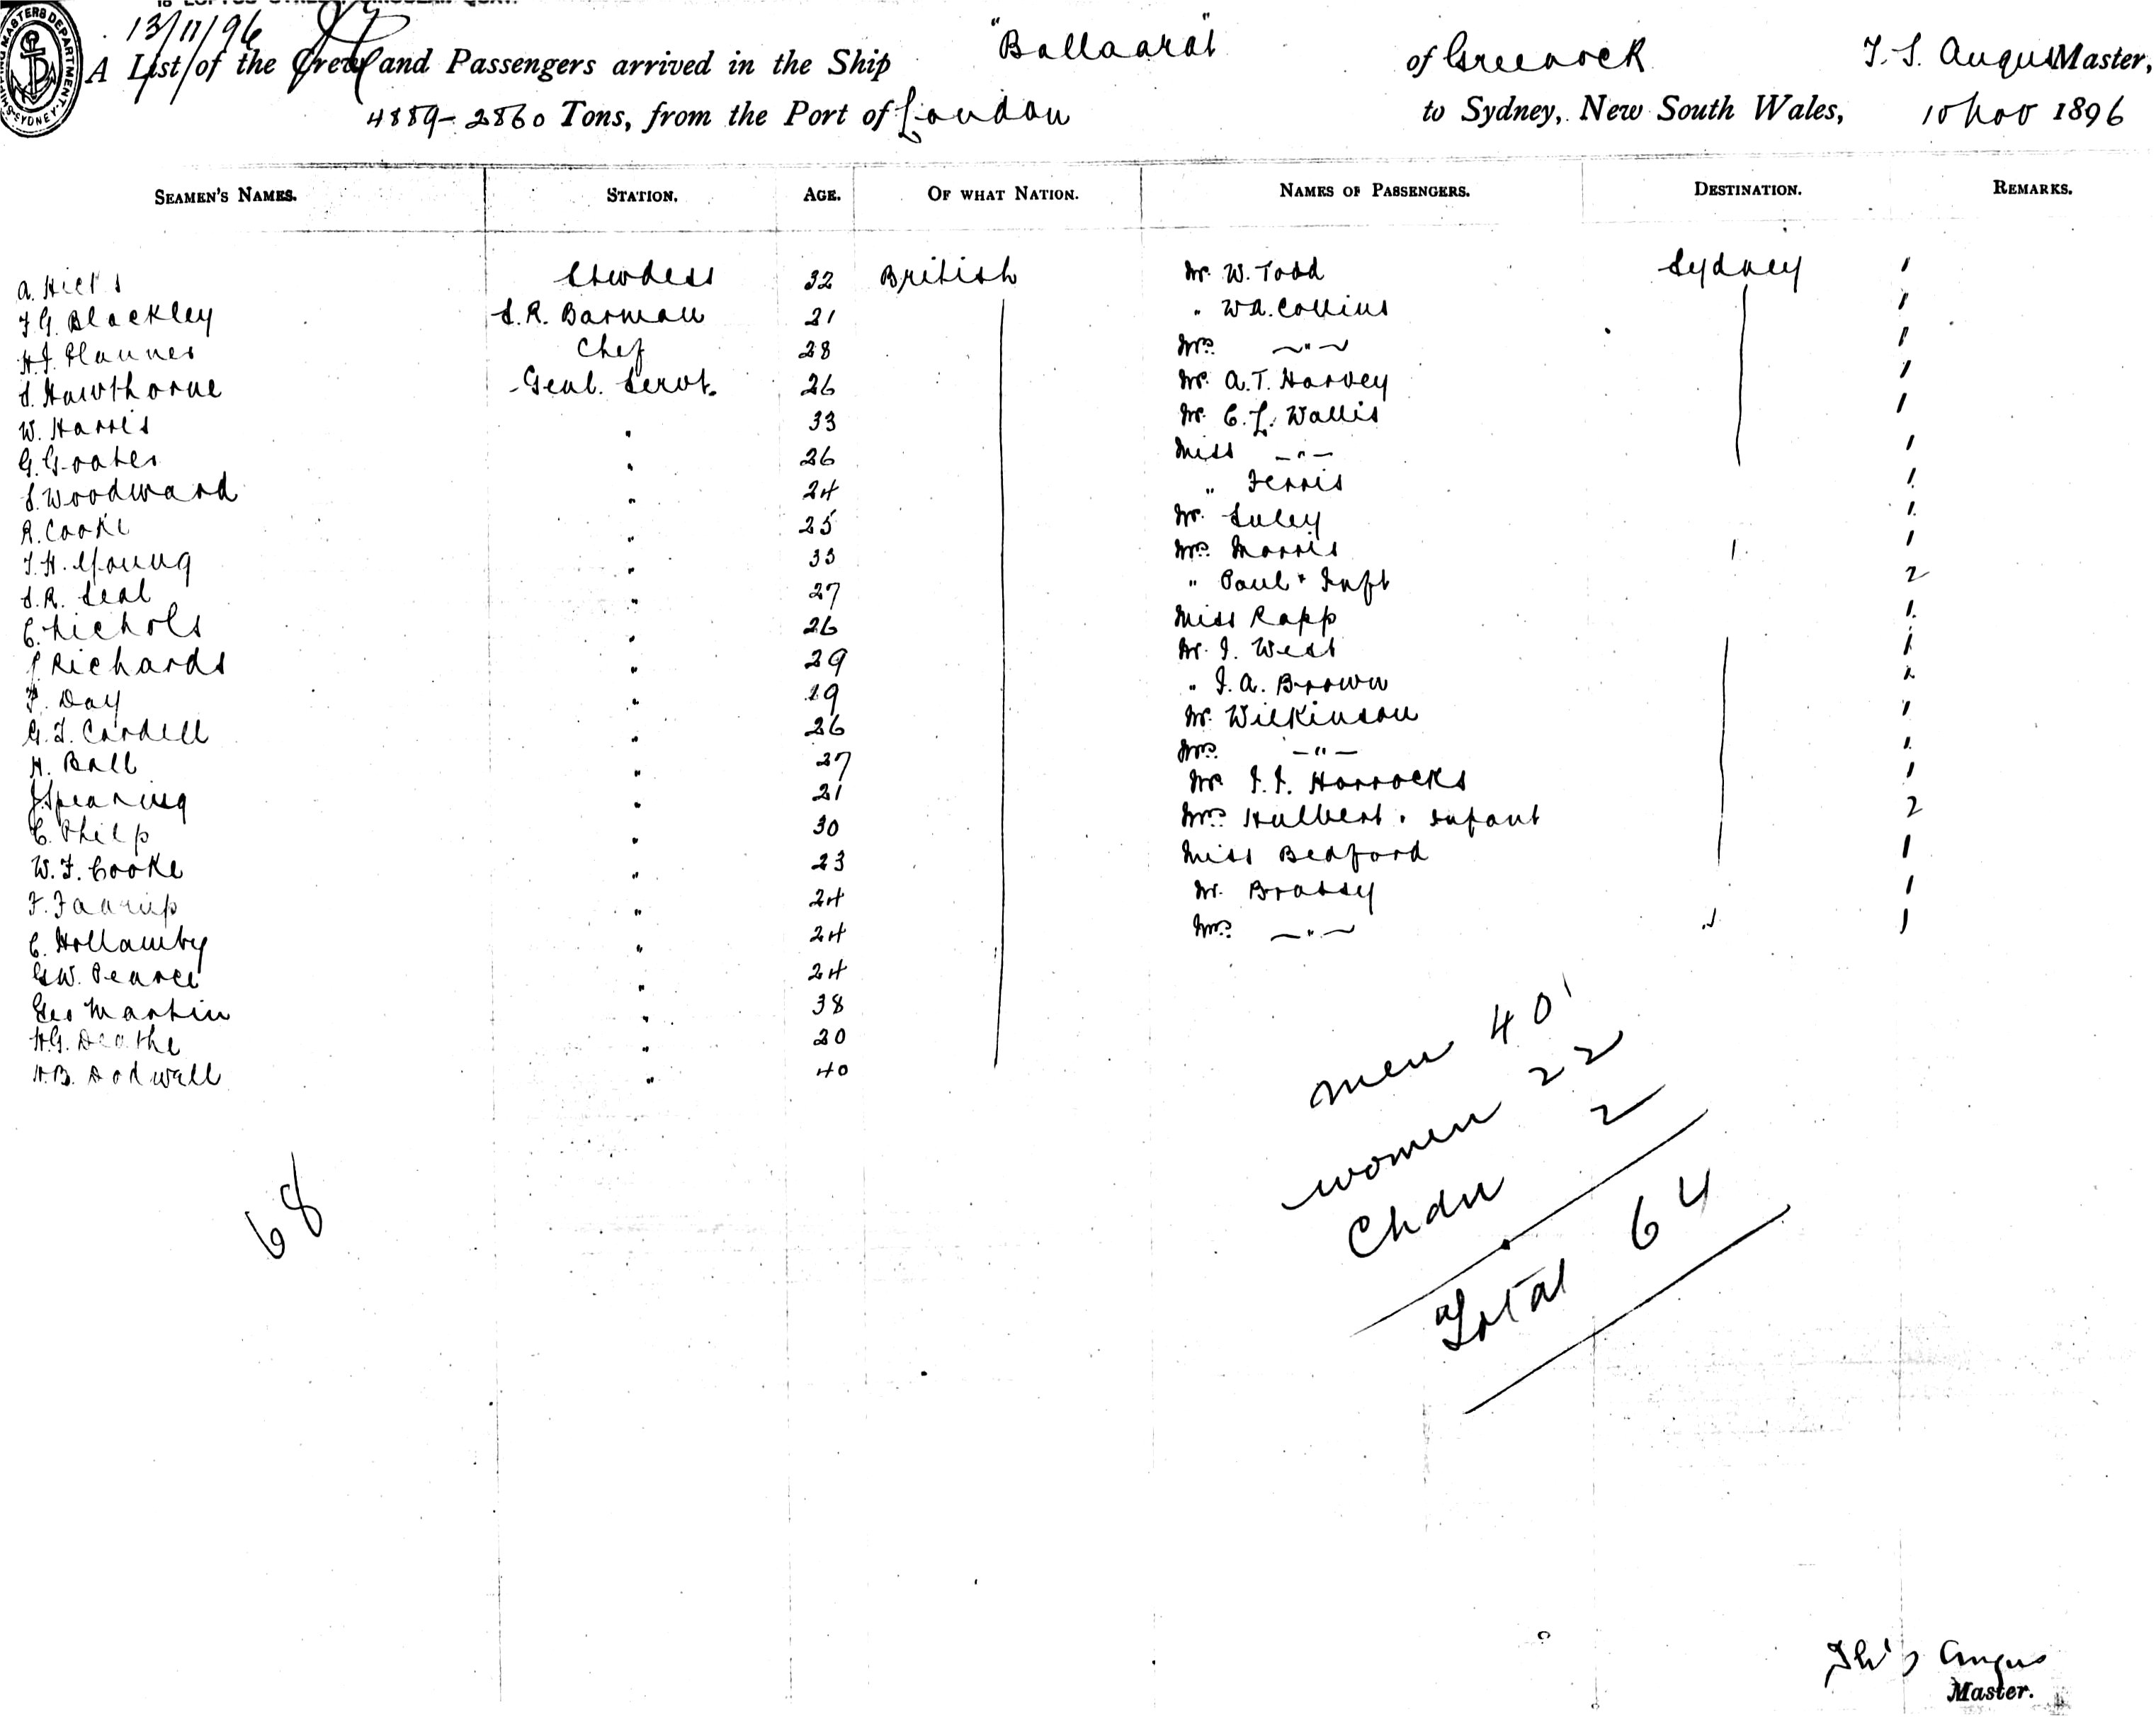 SHIPPING MASTERS DEPARTMENT SYDNEY
13/11/96
A List of the Crew and Passengers arrived in the Ship "Ballaarat" of Greenock T. S. Angus Master,
4889-2860 Tons, from the Port of London to Sydney, New South Wales, 10 Nov 1896
SEAMEN'S NAMES. STATION. AGE. OF WHAT NATION. NAMES OF PASSENGERS. DESTINATION. REMARKS.
A. Stewdess 32 British Mr. W. Todd Sydney 1
F G. Blackley S.R. Barman 21 " W A. Collins 1
Chef 28 Mrs. —"— 1
S. Hawthorne Genl. Servt. 26 Mr. A.T. Harvey 1
W. Harris " 33 Mr. C. L. Wallis 1
G. Goates " 26 Miss —"— 1
S. Woodward " 24 " Ferris 1
R. Cooke " 25 Mr. 1
T. H. Young " 33 Mrs. Morris 1
S.R. Seal " 27 " Paul + Inft 2
C. Nichols " 26 Miss Rapp 1
Richards " 29 Mr. J. West 1
Day " 19 " J. A. Brown
G. J. Cardell " 26 Mr. Wilkinson 1
H. Ball " 27 Mrs —"— 1
J Spearing " 21 Mr J. J. Horrocks 1
C. Philp " 30 Mrs Hulbert + infant 2
W. F. Cooke " 23 Miss Bedford 1
F. " 24 Mr. Brassey 1
C. Hollamby " 24 Mrs. —"— " 1
G W. Pearce " 24
Geo Martin " 38
H.G. Deathe " 20
H.B. Dodwell " 40
men 40
women 22
Chdn 2
Total 64
68
Angus
Master.